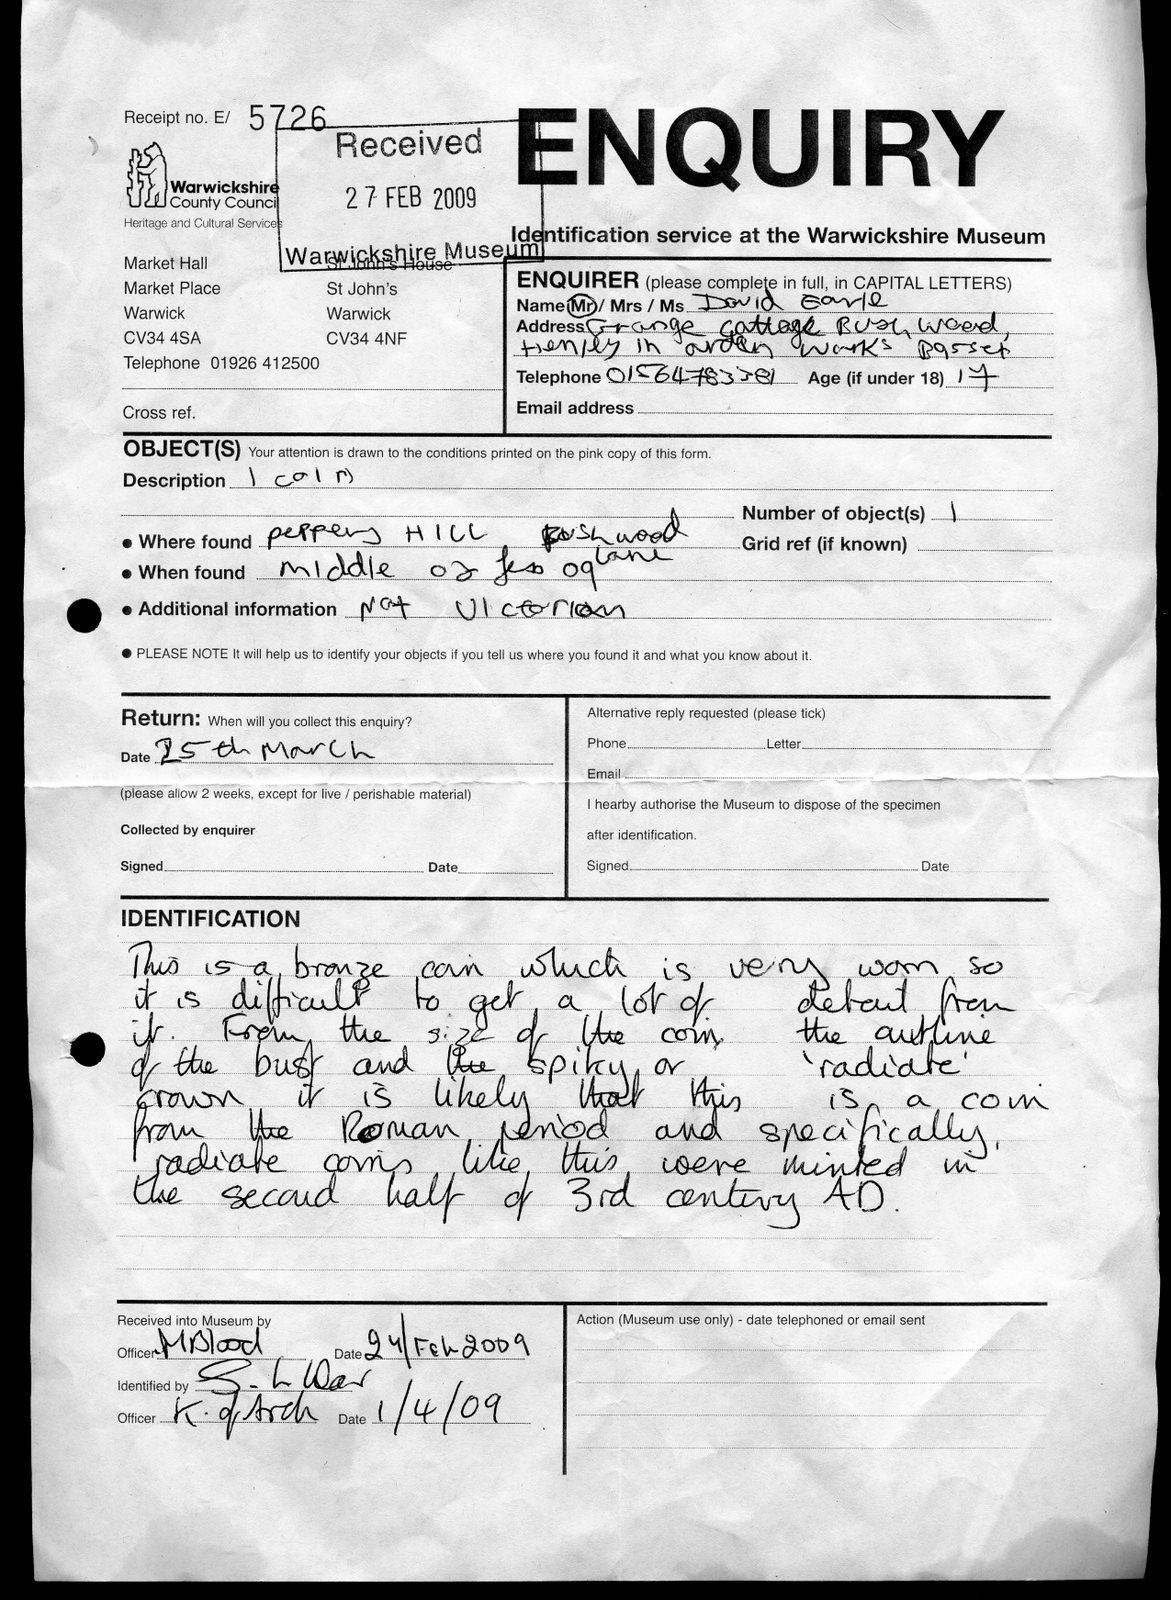 Receipt no. E/ 5726
ENQUIRY
Received
27 FEB 2009
Warwickshire Museum
Warwickshire
County Council
Heritage and Cultural Services
Identification service at the Warwickshire Museum
Market Hall
Market Place
Warwick
CV34 4SA
Telephone 01926 412500
St John's House
St John's
Warwick
CV34 4NF
Cross ref.
ENQUIRER (please complete in full, in CAPITAL LETTERS)
Name Mr / Mrs / Ms David Earle
Address Grange Cottage Bush Wood,
Henley in arden Warks
Telephone 01564783381 Age (if under 18) 17
Email address
OBJECT(S) Your attention is drawn to the conditions printed on the pink copy of this form.
Description 1 coin
Number of object(s) 1
• Where found peppery HILL Bushwood lane
Grid ref (if known)
• When found middle of feb 09
• Additional information Not Victorian
• PLEASE NOTE It will help us to identify your objects if you tell us where you found it and what you know about it.
Return: When will you collect this enquiry?
Date 25th March
(please allow 2 weeks, except for live / perishable material)
Collected by enquirer
Signed Date
Alternative reply requested (please tick)
Phone Letter
Email
I hearby authorise the Museum to dispose of the specimen
after identification.
Signed Date
IDENTIFICATION
This is a bronze coin which is very worn so
it is difficult to get a lot of detail from
it. From the size of the coin, the outline
of the bust and the spiky or 'radiate'
crown it is likely that this is a coin
from the Roman period and specifically,
radiate coins like this were minted in
the second half of 3rd century AD.
Received into Museum by
Officer MBlood Date 24/Feb 2009
Identified by
Officer K. of Arch Date 1/4/09
Action (Museum use only) - date telephoned or email sent